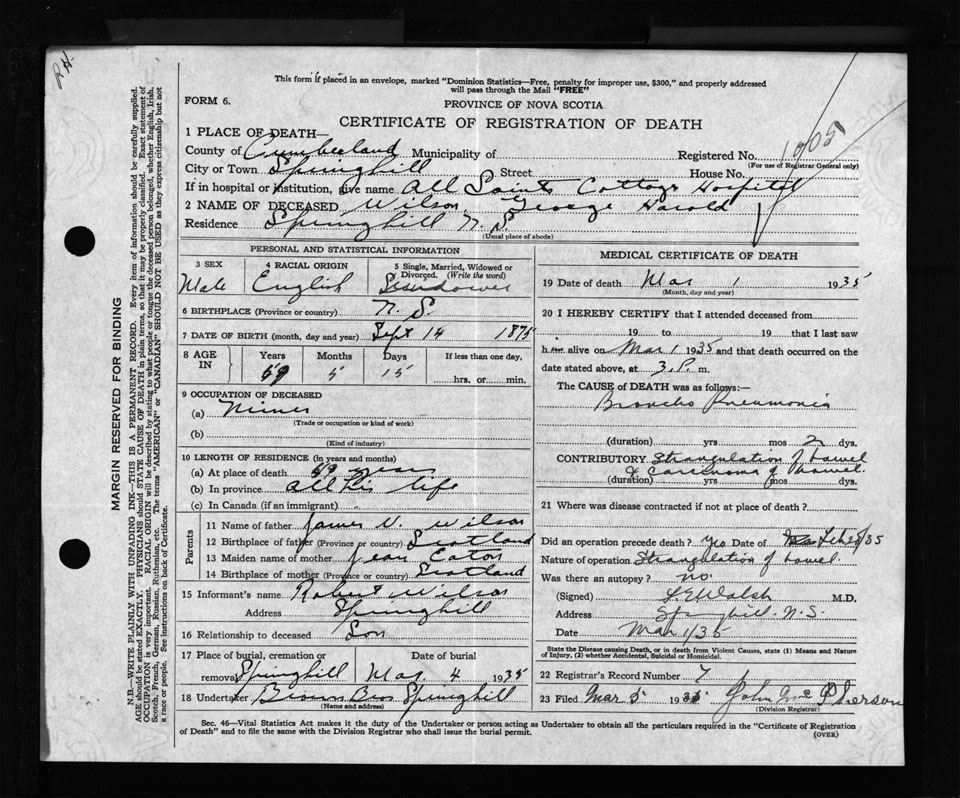 R.H.
This form if placed in an envelope, marked "Dominion Statistics—Free, penalty for improper use, $300," and properly addressed
will pass through the Mail "FREE"
FORM 6.
PROVINCE OF NOVA SCOTIA
CERTIFICATE OF REGISTRATION OF DEATH
1 PLACE OF DEATH—
County of Cumberland Municipality of Registered No.
(For use of Registrar General only)
City or Town Springhill Street House No.
If in hospital or institution, give name All Saints Cottage Hospital
2 NAME OF DECEASED Wilson, George Harold
Residence Springhill N. S.
(Usual place of abode)
PERSONAL AND STATISTICAL INFORMATION
3 SEX 4 RACIAL ORIGIN 5 Single, Married, Widowed or
Divorced. (Write the word)
Male English
6 BIRTHPLACE (Province or country) N. S.
7 DATE OF BIRTH (month, day and year) Sept 14 1875
8 AGE IN Years Months Days If less than one day,
59 5 15 hrs. or min.
9 OCCUPATION OF DECEASED
(a) Miner
(Trade or occupation or kind of work)
(b)
(Kind of industry)
10 LENGTH OF RESIDENCE (in years and months)
(a) At place of death 59 years
(b) In province all his life
(c) In Canada (if an immigrant)
Parents
11 Name of father James W. Wilson
12 Birthplace of father (Province or country) Scotland
13 Maiden name of mother Jean Eaton
14 Birthplace of mother (Province or country) Scotland
15 Informant's name Robert Wilson
Address Springhill
16 Relationship to deceased Son
17 Place of burial, cremation or Date of burial
removal Springhill Mar 4 1935
18 Undertaker Brown Bros Springhill
(Name and address)
MEDICAL CERTIFICATE OF DEATH
19 Date of death Mar 1 1935
(Month, day and year)
20 I HEREBY CERTIFY that I attended deceased from
19 to 19 that I last saw
him alive on Mar 1 1935 and that death occurred on the
date stated above, at 3. P. m.
The CAUSE of DEATH was as follows:—
Broncho Pneumonia
(duration) yrs mos 2 dys.
CONTRIBUTORY Strangulation of bowel
& Carcinoma of bowel
(duration) yrs mos dys.
21 Where was disease contracted if not at place of death?
Did an operation precede death? yes Date of Feb 35
Nature of operation Strangulation of bowel
Was there an autopsy? no.
(Signed) L E Walsh M.D.
Address Springhill. N.S.
Date Mar 1/35
State the Disease causing Death, or in death from Violent Causes, state (1) Means and Nature
of Injury, (2) whether Accidental, Suicidal or Homicidal.
22 Registrar's Record Number 7
23 Filed Mar 5 1935 John McPherson
(Division Registrar)
Sec. 46—Vital Statistics Act makes it the duty of the Undertaker or person acting as Undertaker to obtain all the particulars required in the "Certificate of Registration
of Death" and to file the same with the Division Registrar who shall issue the burial permit.
(OVER)
MARGIN RESERVED FOR BINDING
N.B.—WRITE PLAINLY WITH UNFADING INK—THIS IS A PERMANENT RECORD. Every item of information should be carefully supplied.
AGE should be stated EXACTLY. PHYSICIANS should STATE CAUSE OF DEATH in plain terms, so that it may be properly classified. Exact statement of
OCCUPATION is very important. RACIAL ORIGIN will be described by stating to what people or tongue the deceased person belonged, whether English, Irish,
Scotch, French, German, Russian, Ruthenian, etc. The terms "AMERICAN" or "CANADIAN" SHOULD NOT BE USED as they express citizenship but not
a race or people. See instructions on back of Certificate.